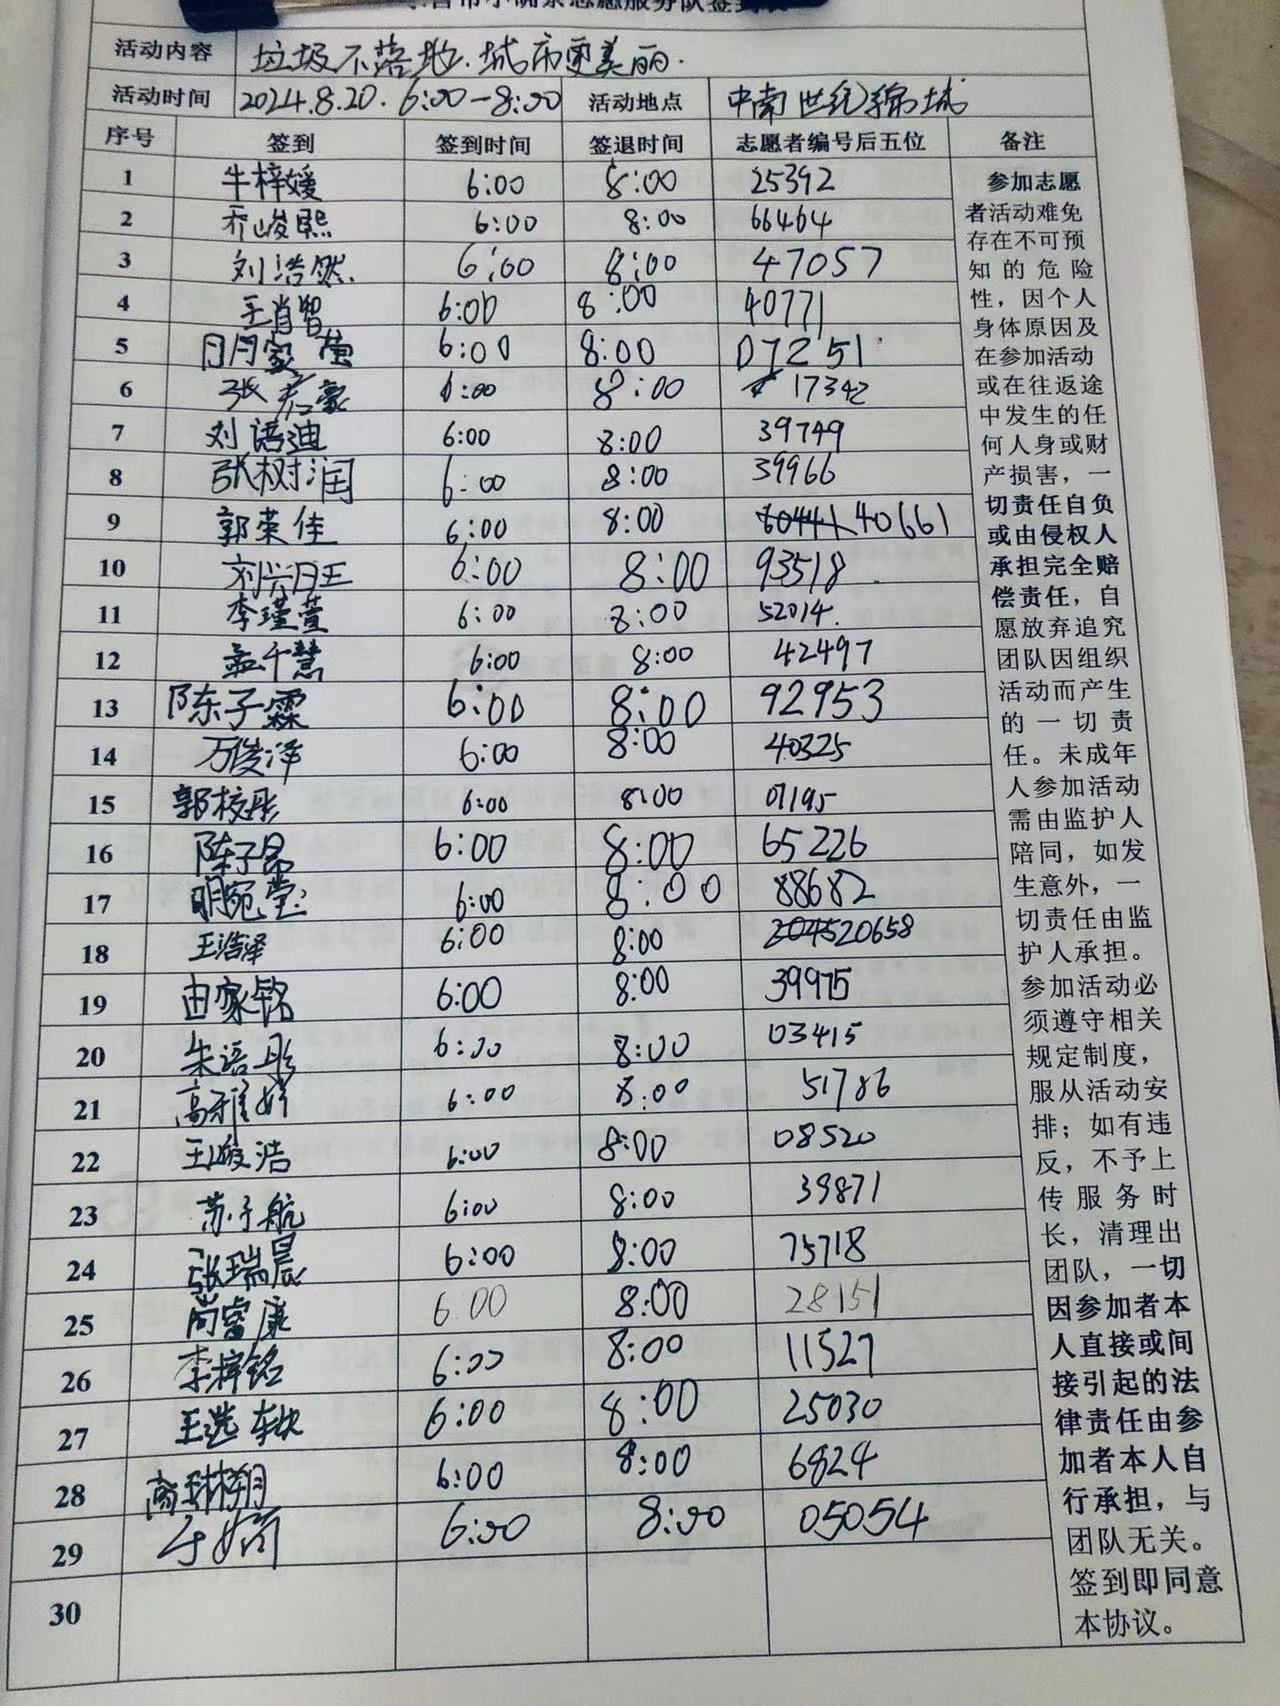 活动内容 垃圾不落地.城市更美丽.
活动时间 2024.8.20. 6:00-8:00 活动地点 中南世纪锦城
序号 签到 签到时间 签退时间 志愿者编号后五位 备注
1 牛梓媛 6:00 8:00 25392
2 乔峻熙 6:00 8:00 66464
3 刘浩然 6:00 8:00 47057
4 王肖智 6:00 8:00 40771
5 6:00 8:00 07251
6 张君豪 6:00 8:00 17342
7 刘语迪 6:00 8:00 39749
8 张树润 6:00 8:00 39966
9 郭荣佳 6:00 8:00 40661
10 6:00 8:00 93518
11 李瑾萱 6:00 8:00 52014.
12 孟千慧 6:00 8:00 42497
13 陈子霖 6:00 8:00 92953
14 万俊泽 6:00 8:00 40325
15 郭校彤 6:00 8:00 01195
16 陈子昂 6:00 8:00 65226
17 明宛莹 6:00 8:00 88682
18 王浩泽 6:00 8:00 20658
19 由家铭 6:00 8:00 39975
20 朱语彤 6:00 8:00 03415
21 高雅婷 6:00 8:00 51786
22 王峻浩 6:00 8:00 08520
23 苏子航 6:00 8:00 39871
24 张瑞晨 6:00 8:00 75718
25 尚富康 6:00 8:00 28151
26 李梓铭 6:00 8:00 11527
27 王选轶 6:00 8:00 25030
28 6:00 8:00 6824
29 6:00 8:00 05054
30
参加志愿
者活动难免
存在不可预
知的危险
性，因个人
身体原因及
在参加活动
或在往返途
中发生的任
何人身或财
产损害，一
切责任自负
或由侵权人
承担完全赔
偿责任，自
愿放弃追究
团队因组织
活动而产生
的一切责
任。未成年
人参加活动
需由监护人
陪同，如发
生意外，一
切责任由监
护人承担。
参加活动必
须遵守相关
规定制度，
服从活动安
排；如有违
反，不予上
传服务时
长，清理出
团队，一切
因参加者本
人直接或间
接引起的法
律责任由参
加者本人自
行承担，与
团队无关。
签到即同意
本协议。